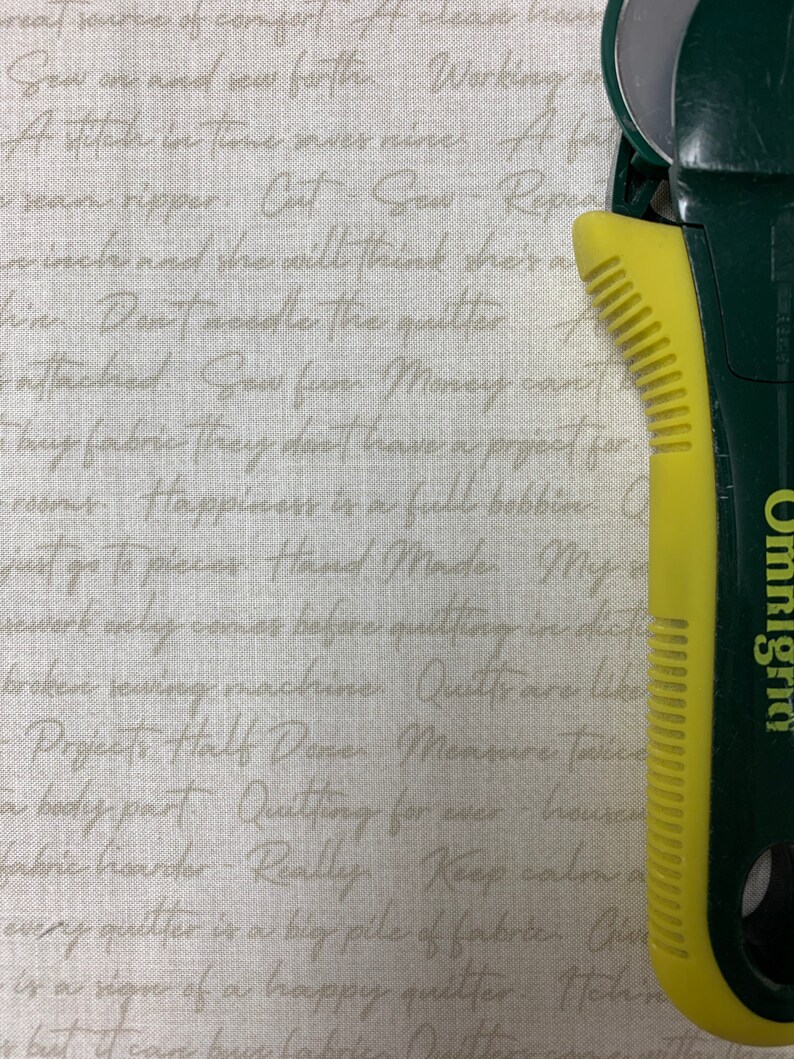 great source of comfort. A clean hous
Sew on and sew forth. Working on
A stitch in time saves nine. A fat
seam ripper. Cut - Sew - Repea
inch and she will think she's a
h'n. Don't needle the quilter. A
attached. Sew fun. Money can't b
buy fabric they don't have a project for
rooms. Happiness is a full bobbin. Q
just go to pieces. Hand Made. My s
sework only comes before quilting in dicti
broken sewing machine. Quilts are like
- Projects Half Done. Measure twice
a body part. Quilting for ever - housew
fabric hoarder - Really. Keep calm a
every quilter is a big pile of fabric. Give
is a sign of a happy quilter. Itch'n
s but it can buy fabric. Quilters
Omnigrid